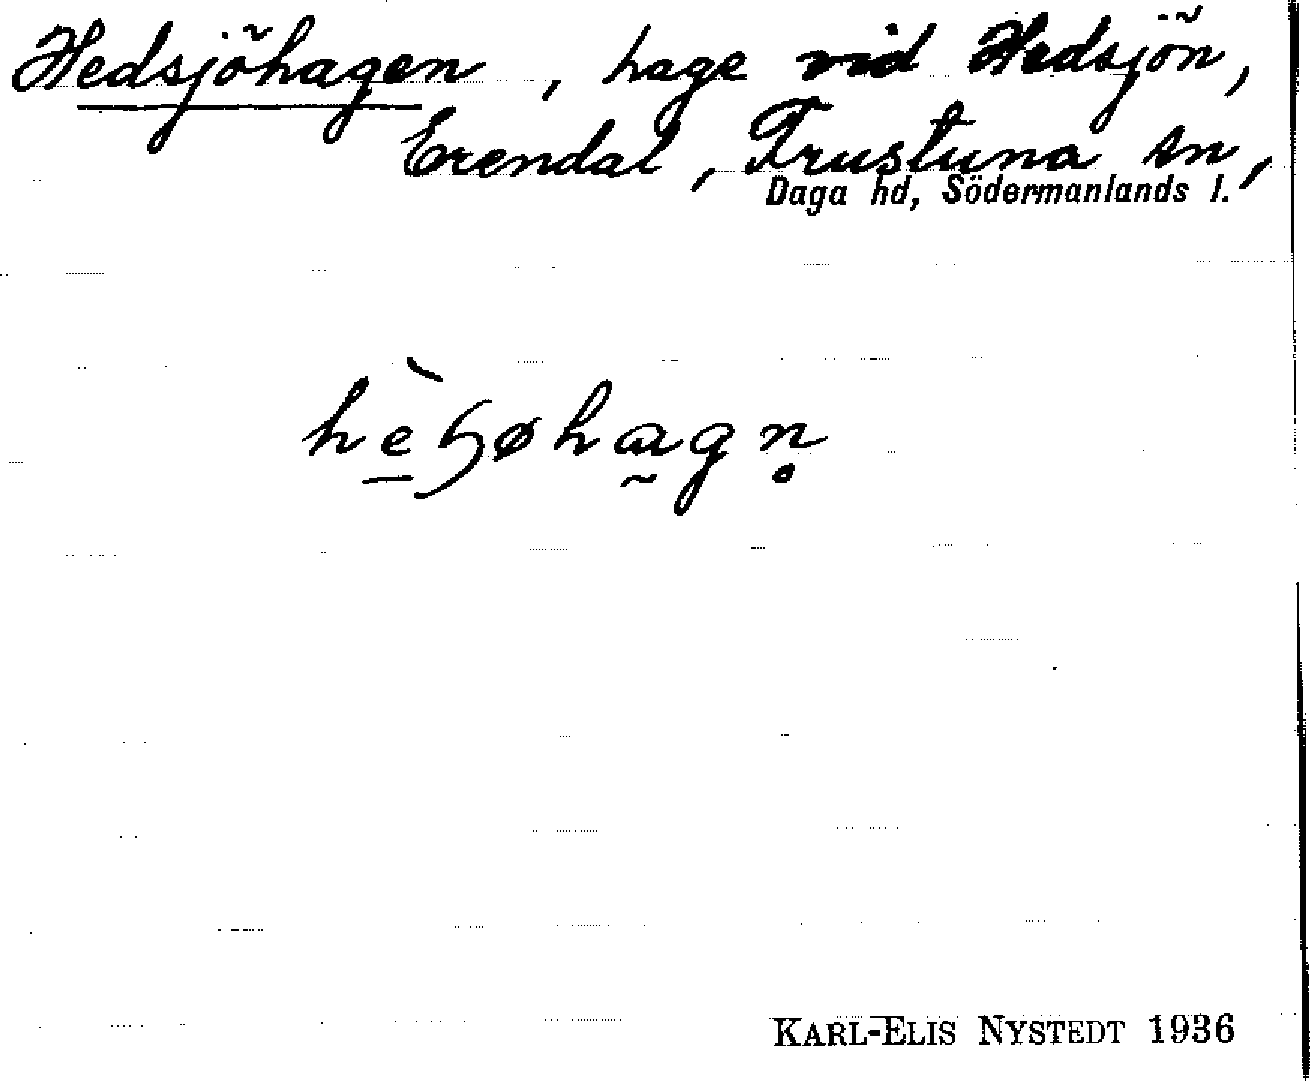 Hedsjöhagen, hage vid Hedsjön,
Erendal, Frustuna sn,
Daga hd, Södermanlands l.
KARL-ELIS NYSTEDT 1936